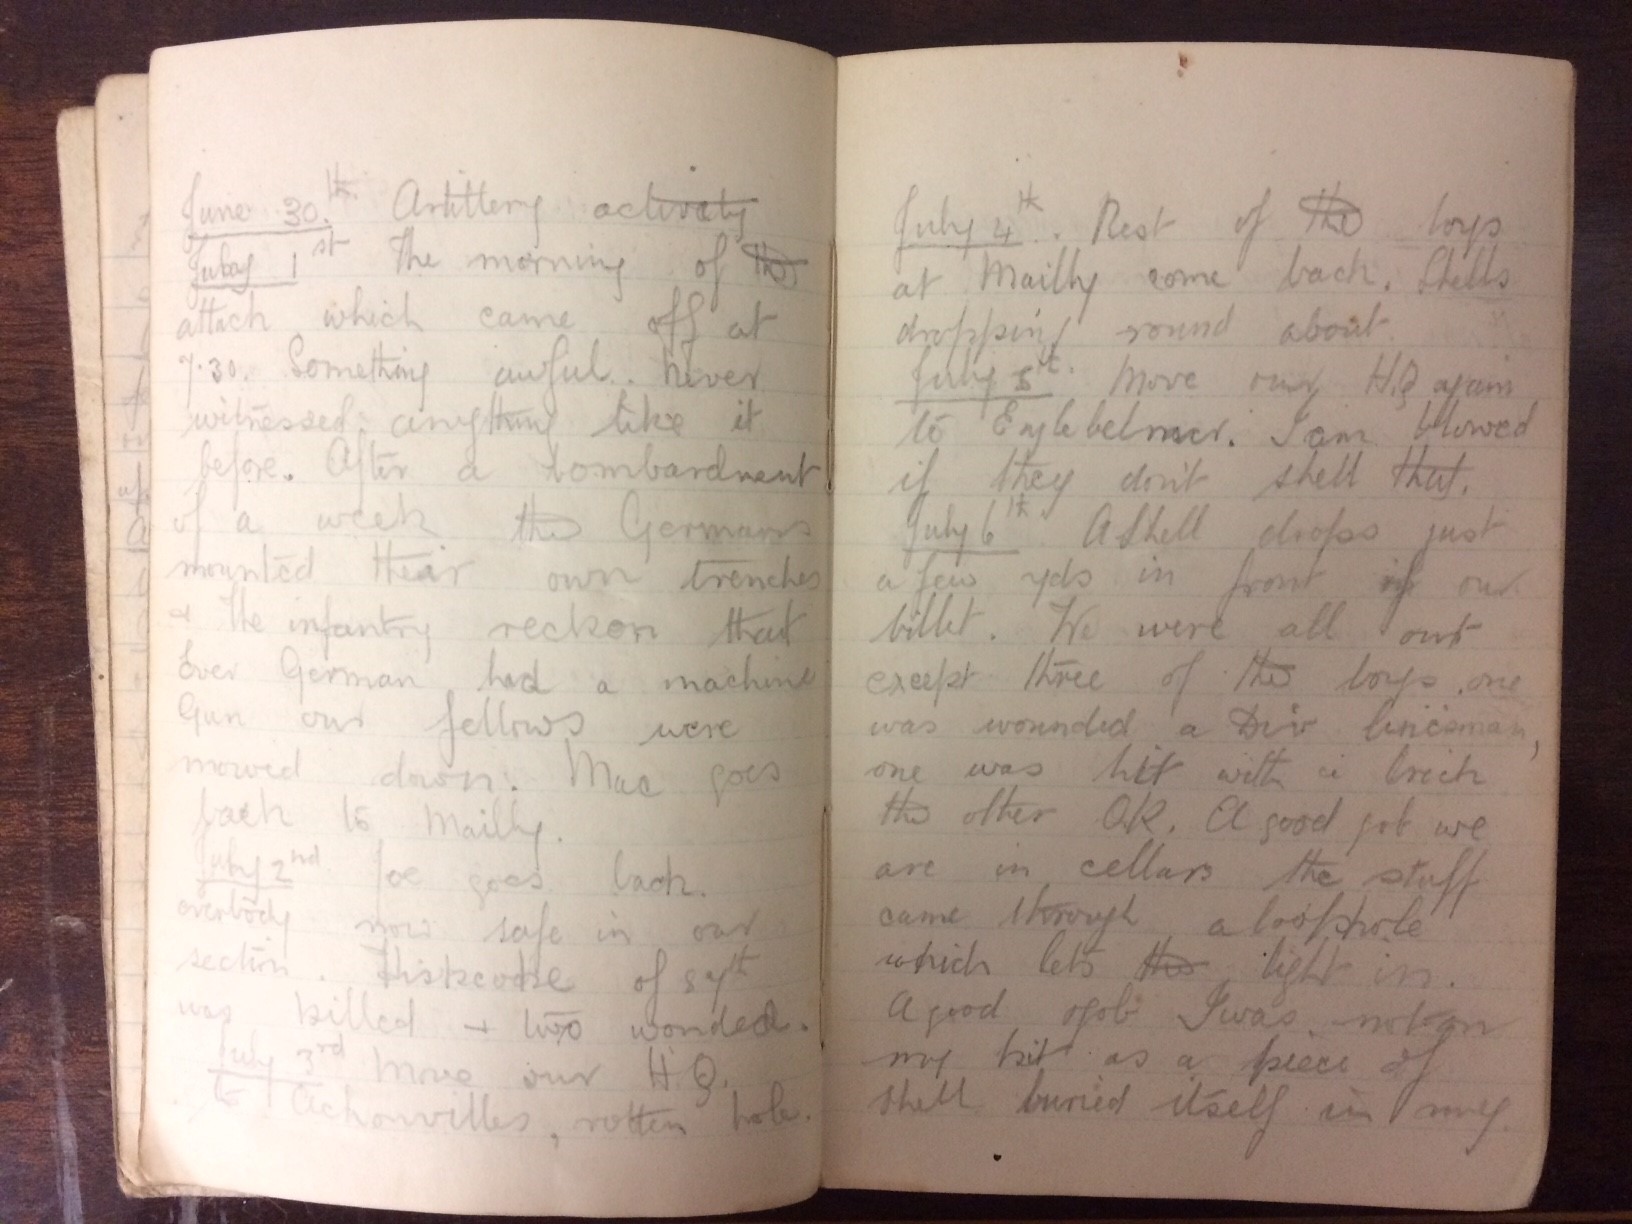 June 30.th Artillery activity
July 1st The morning of the
attack which came off at
7.30. Something awful. Never
witnessed anything like it
before. After a bombardment
of a week the Germans
mounted their own trenches
+ the infantry reckon that
Ever German had a machine
Gun our fellows were
mowed down. Mac goes
back to Mailly.
July 2nd Joe goes back.
everbody now safe in our
section. of 87th
was killed + two wonded.
July 3rd Move our H.Q.
to Achonvilles, rotten hole.
July 4th. Rest of the boys
at Mailly come back. Shells
dropping round about.
July 5th. Move our H.Q again
to Englebelmer. I am blowed
if they don't shell that.
July 6th. A Shell drops just
a few yds in front of our
billet. We were all out
except three of the boys, one
was wounded a Div linesman,
one was hit with a brick
the other OK. A good job we
are in cellars the stuff
came through a loophole
which lets the light in.
A good job I was not on
my kit as a piece of
shell buried itself in my